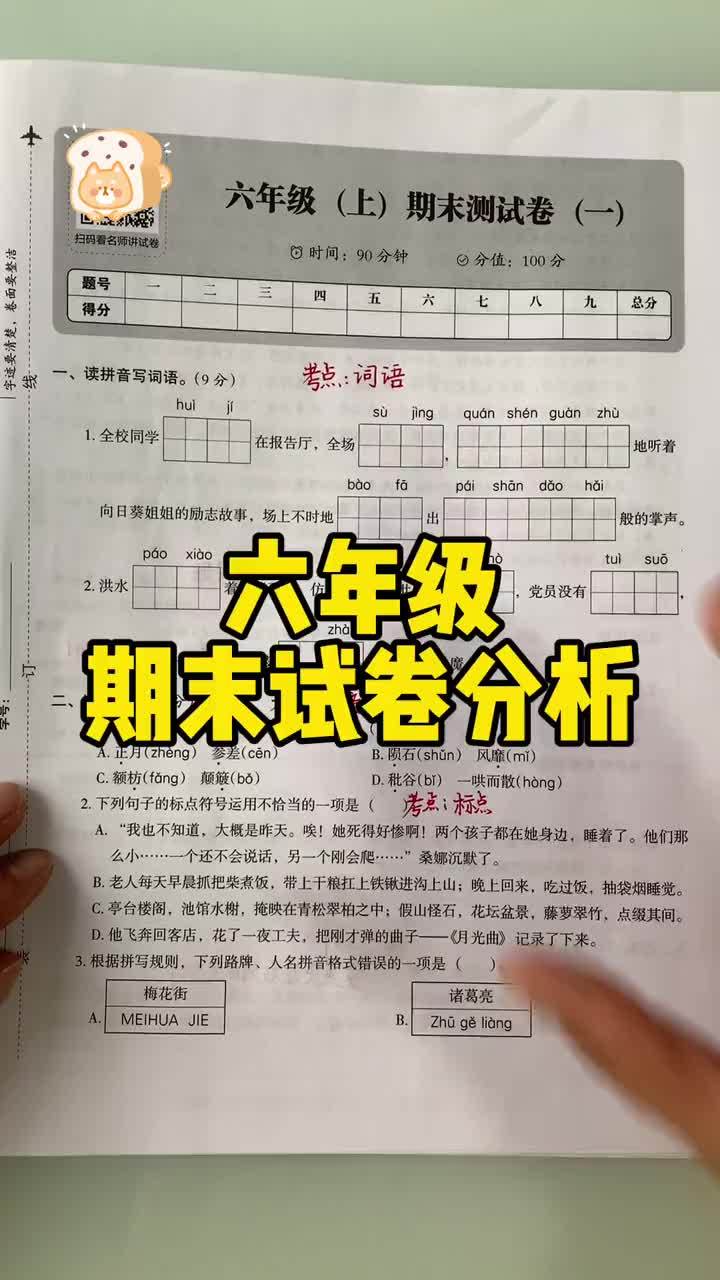 六年级（上）期末测试卷（一）
扫码看名师讲试卷
时间：90分钟 分值：100分
题号 一 二 三 四 五 六 七 八 九 总分
得分
字迹要清楚，卷面要整洁
线
订
装
学号：
一、读拼音写词语。（9分） 考点：词语
huì jí sù jìng quán shén guàn zhù
1. 全校同学 在报告厅，全场 ， 地听着
bào fā pái shān dǎo hǎi
向日葵姐姐的励志故事，场上不时地 出 般的掌声。
páo xiào tuì suō
2. 洪水 着 ，党员没有 ，
六年级
期末试卷分析
魔
二、
A. 正月(zhèng) 参差(cēn) B. 陨石(shǔn) 风靡(mǐ)
C. 额枋(fāng) 颠簸(bǒ) D. 秕谷(bǐ) 一哄而散(hòng)
2. 下列句子的标点符号运用不恰当的一项是（ 考点：标点
A. “我也不知道，大概是昨天。唉！她死得好惨啊！两个孩子都在她身边，睡着了。他们那
么小……一个还不会说话，另一个刚会爬……”桑娜沉默了。
B. 老人每天早晨抓把柴煮饭，带上干粮扛上铁锹进沟上山；晚上回来，吃过饭，抽袋烟睡觉。
C. 亭台楼阁，池馆水榭，掩映在青松翠柏之中；假山怪石，花坛盆景，藤萝翠竹，点缀其间。
D. 他飞奔回客店，花了一夜工夫，把刚才弹的曲子——《月光曲》记录了下来。
3. 根据拼写规则，下列路牌、人名拼音格式错误的一项是（ ）
梅花街 诸葛亮
A. MEIHUA JIE B. Zhū gě liàng